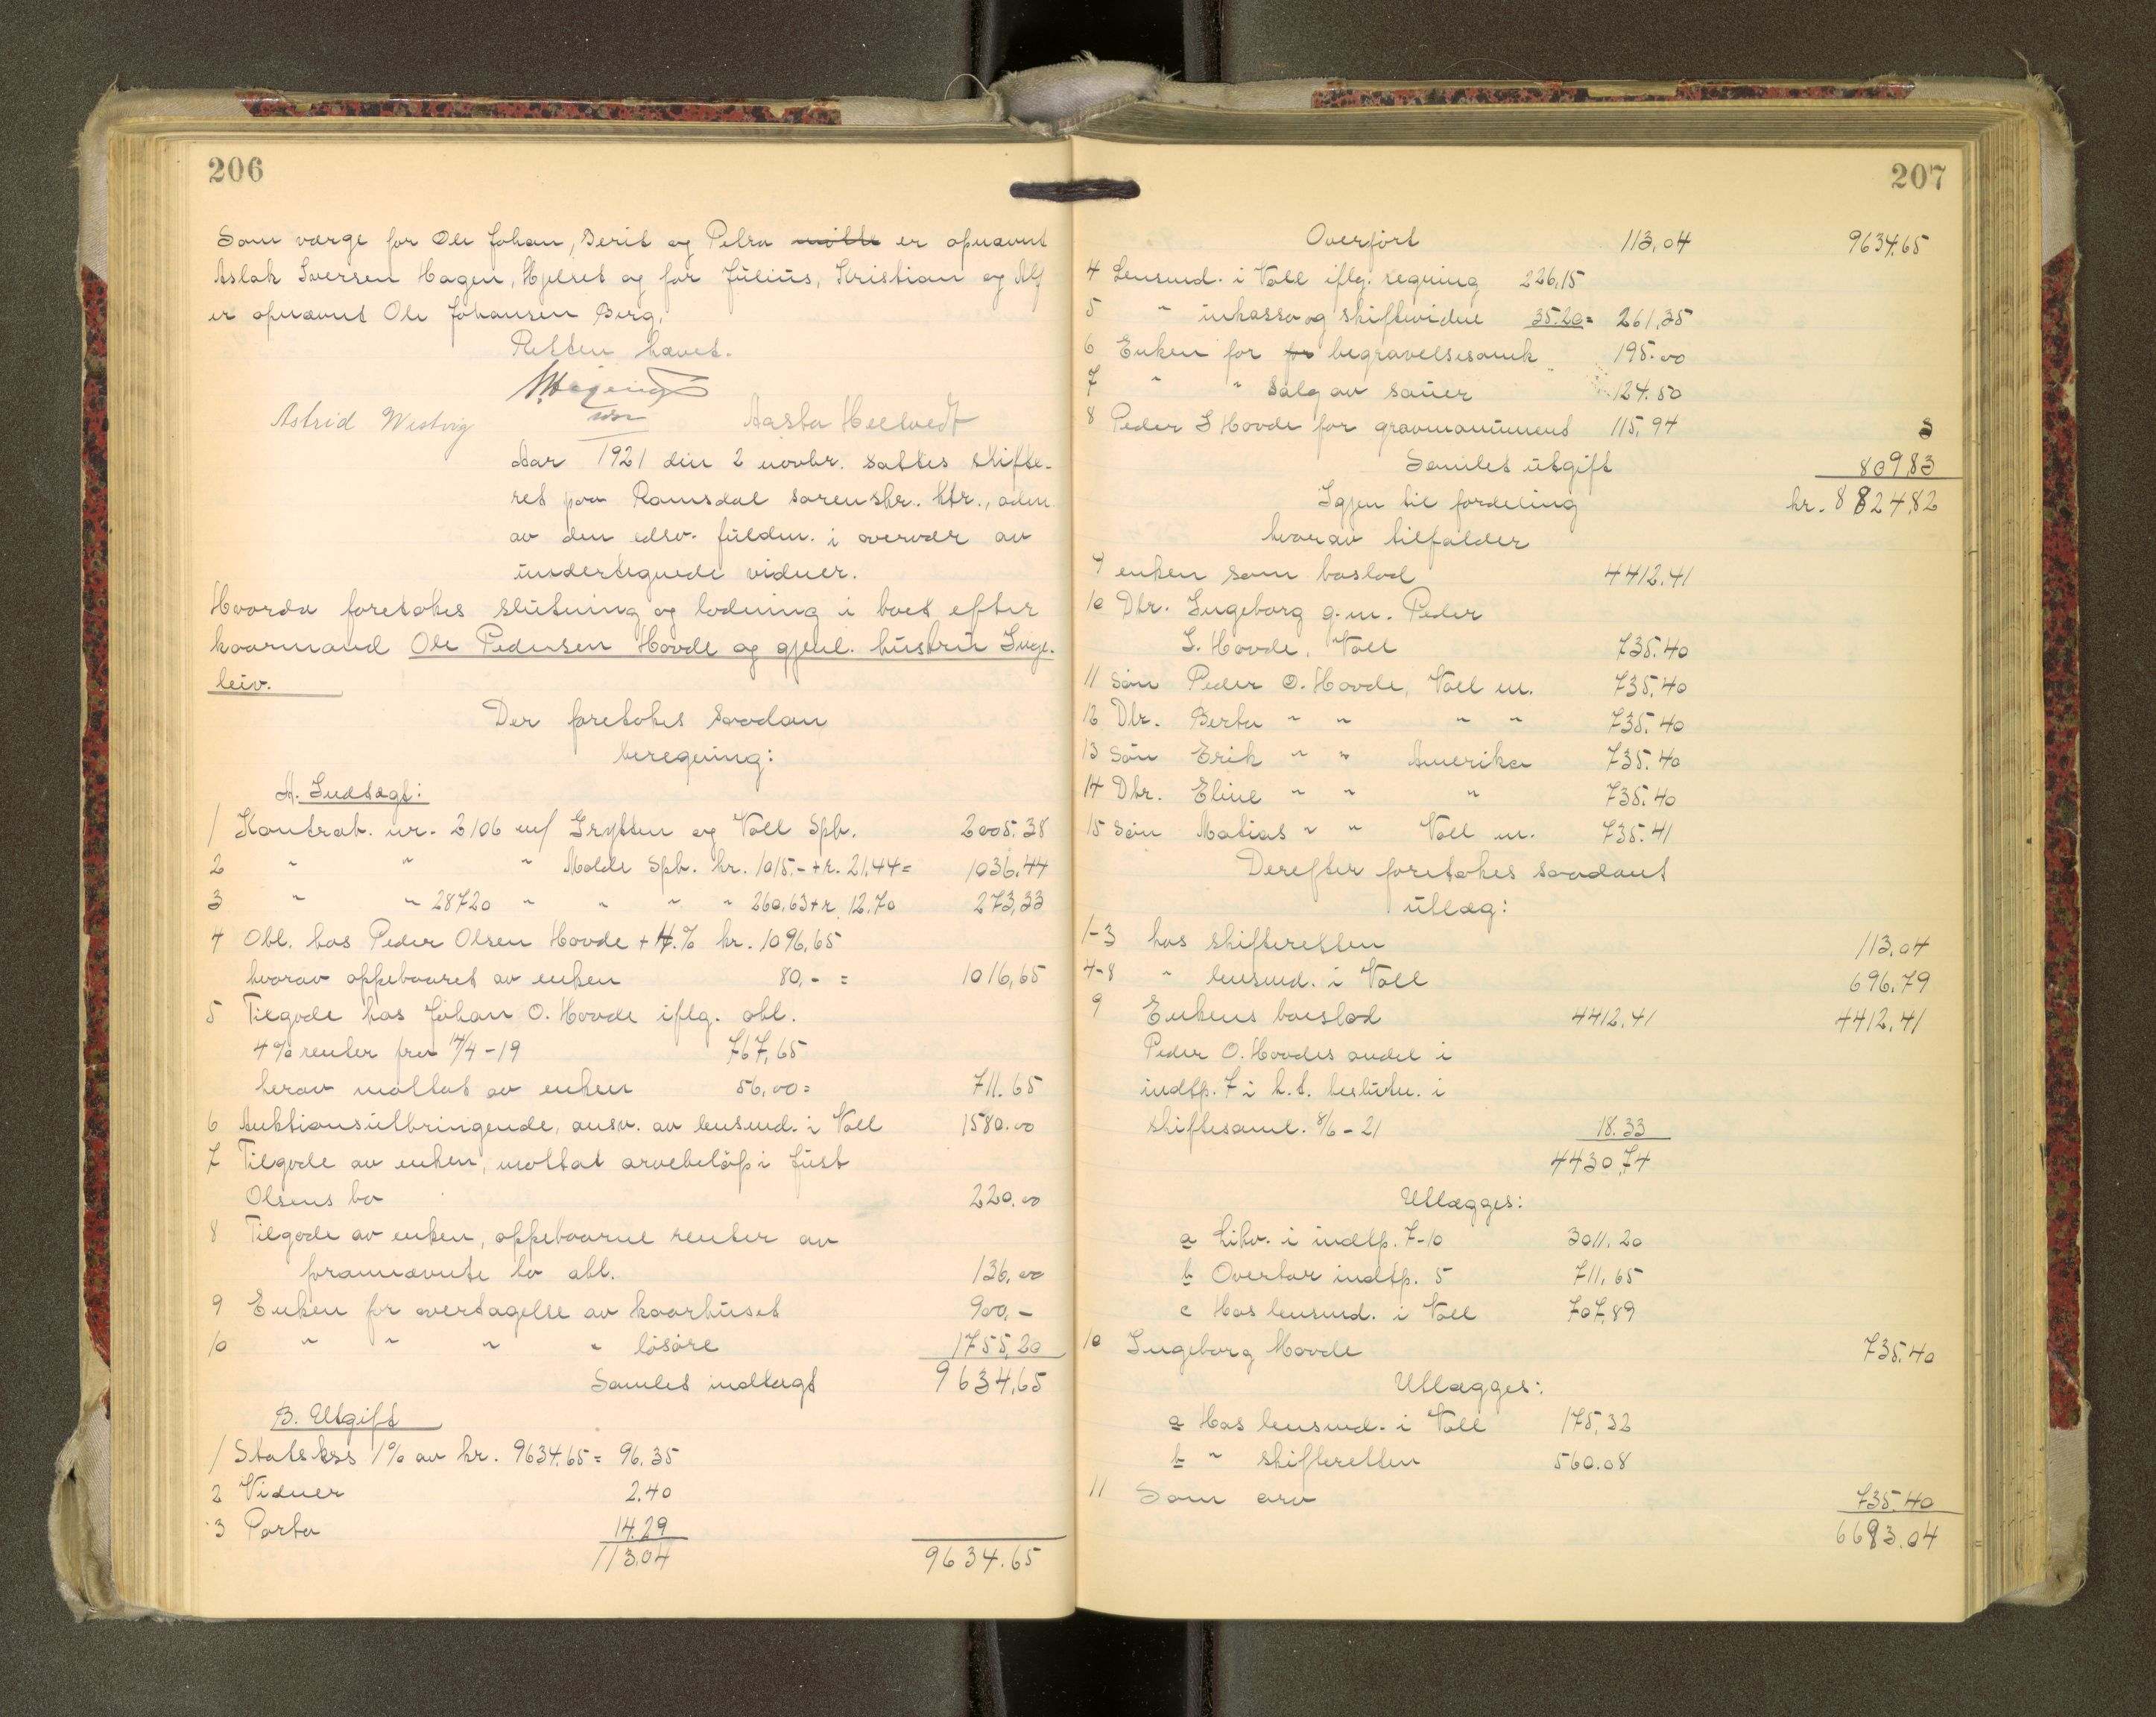 206
Som værge for Ole Johan, Berit og Petra møtte er opnævnt
Aslak Iversen Hagen, Hjelset og for Julius, Kristian og Alf
er opnævnt Ole Johansen Berg.
Retten hævet.
Astrid Westvig
Aasta Heltvedt
Aar 1921 den 2 novbr. sattes skifte-
ret paa Romsdal sorenskr. ktr., adm.
av den edsv. fuldm. i overvær av
undertegnede vidner.
Hvorda foretokes slutning og lodning i boet efter
kaarmand Ole Pedersen Hovde og gjenl. hustru Inge-
leiv.
Der foretokes saadan
beregning:
A. Indtægt:
1 Kontrab. nr. 2106 m/ Grytten og Voll Spb. 2005.38
2 " " " Molde Spb. kr. 1015.- + r. 21.44 = 1036.44
3 " " 28720 " " " " 260,63 + r. 12.70 273,33
4 Obl. hos Peder Olsen Hovde + 4.% kr. 1096,65
hvorav oppebaaret av enken 80,- = 1016,65
5 Tilgode hos Johan O. Hovde iflg. obl.
4% renter fra 14/4-19 767,65
herav mottat av enken 56,00 = 711.65
6 Auktionsutbringende, ansv. av lensmd. i Voll 1580.00
7 Tilgode av enken, mottat arvebeløp i Just
Olsens bo 220.00
8 Tilgode av enken, oppebaarne renter av
forannævnte to obl. 136.00
9 Enken for overtagelse av kaarhuset 900,-
10 " " " " løsøre 1755,20
Samlet indtægt 9634,65
B. Utgift
1 Statskss 1% av kr. 9634.65 = 96.35
2 Vidner 2.40
3 Porto 14.29
113.04 9634.65
207
Overført 113,04 9634.65
4 Lensmd. i Voll iflg. regning 226,15
5 " inkasso og skiftevidne 35.20 = 261,35
6 Enken for for begravelsesomk. 195.00
7 " " salg av sauer 124.50
8 Peder I Hovde for gravmonument 115.94
Samlet utgift 809,83
Igjen til fordeling kr. 8824,82
hvorav tilfalder
9 enken som boslod 4412.41
10 Dtr. Ingeborg g.m. Peder
I. Hovde, Voll 735.40
11 Søn Peder O. Hovde, Voll m. 735.40
12 Dtr. Berta " " " " 735.40
13 Søn Erik " " Amerika 735.40
14 Dtr. Eline " " " 735.40
15 Søn Matias " " Voll m. 735.41
Derefter foretokes saadant
utlæg:
1-3 hos skifteretten 113.04
4-8 " lensmd. i Voll 696.79
9 Enkens boeslod 4412.41 4412.41
Peder O. Hovdes andel i
indtp. 7 i h.t. beslutn. i
skiftesaml. 8/6-21 18.33
4430,74
Utlægges:
a Likv. i indtp. 7-10 3011.20
b Overtar indtp. 5 711,65
c Hos lensmd. i Voll 707,89
10 Ingeborg Hovde 735.40
Utlægges:
a Hos lensmd. i Voll 175,32
b " skifteretten 560.08
11 Som arv 735.40
6693.04